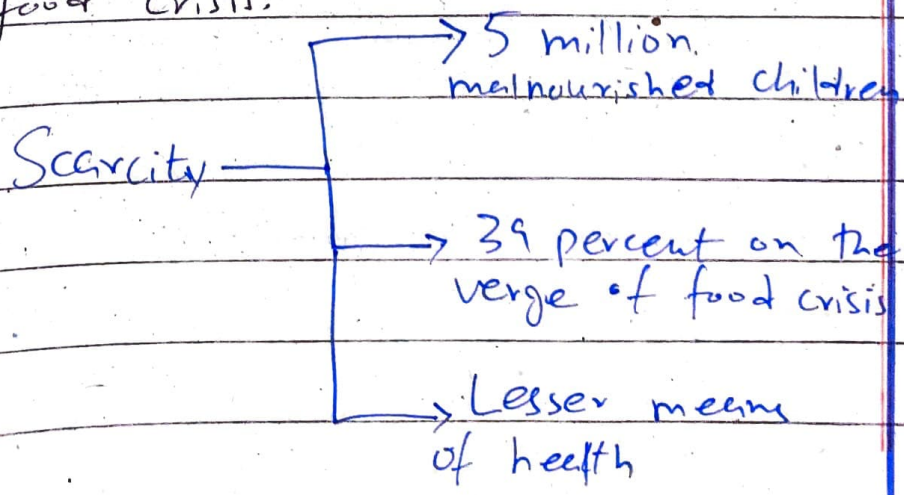 food crisis.
5 million.
malnourished children
Scarcity
39 percent on the
verge of food crisis
Lesser means
of health